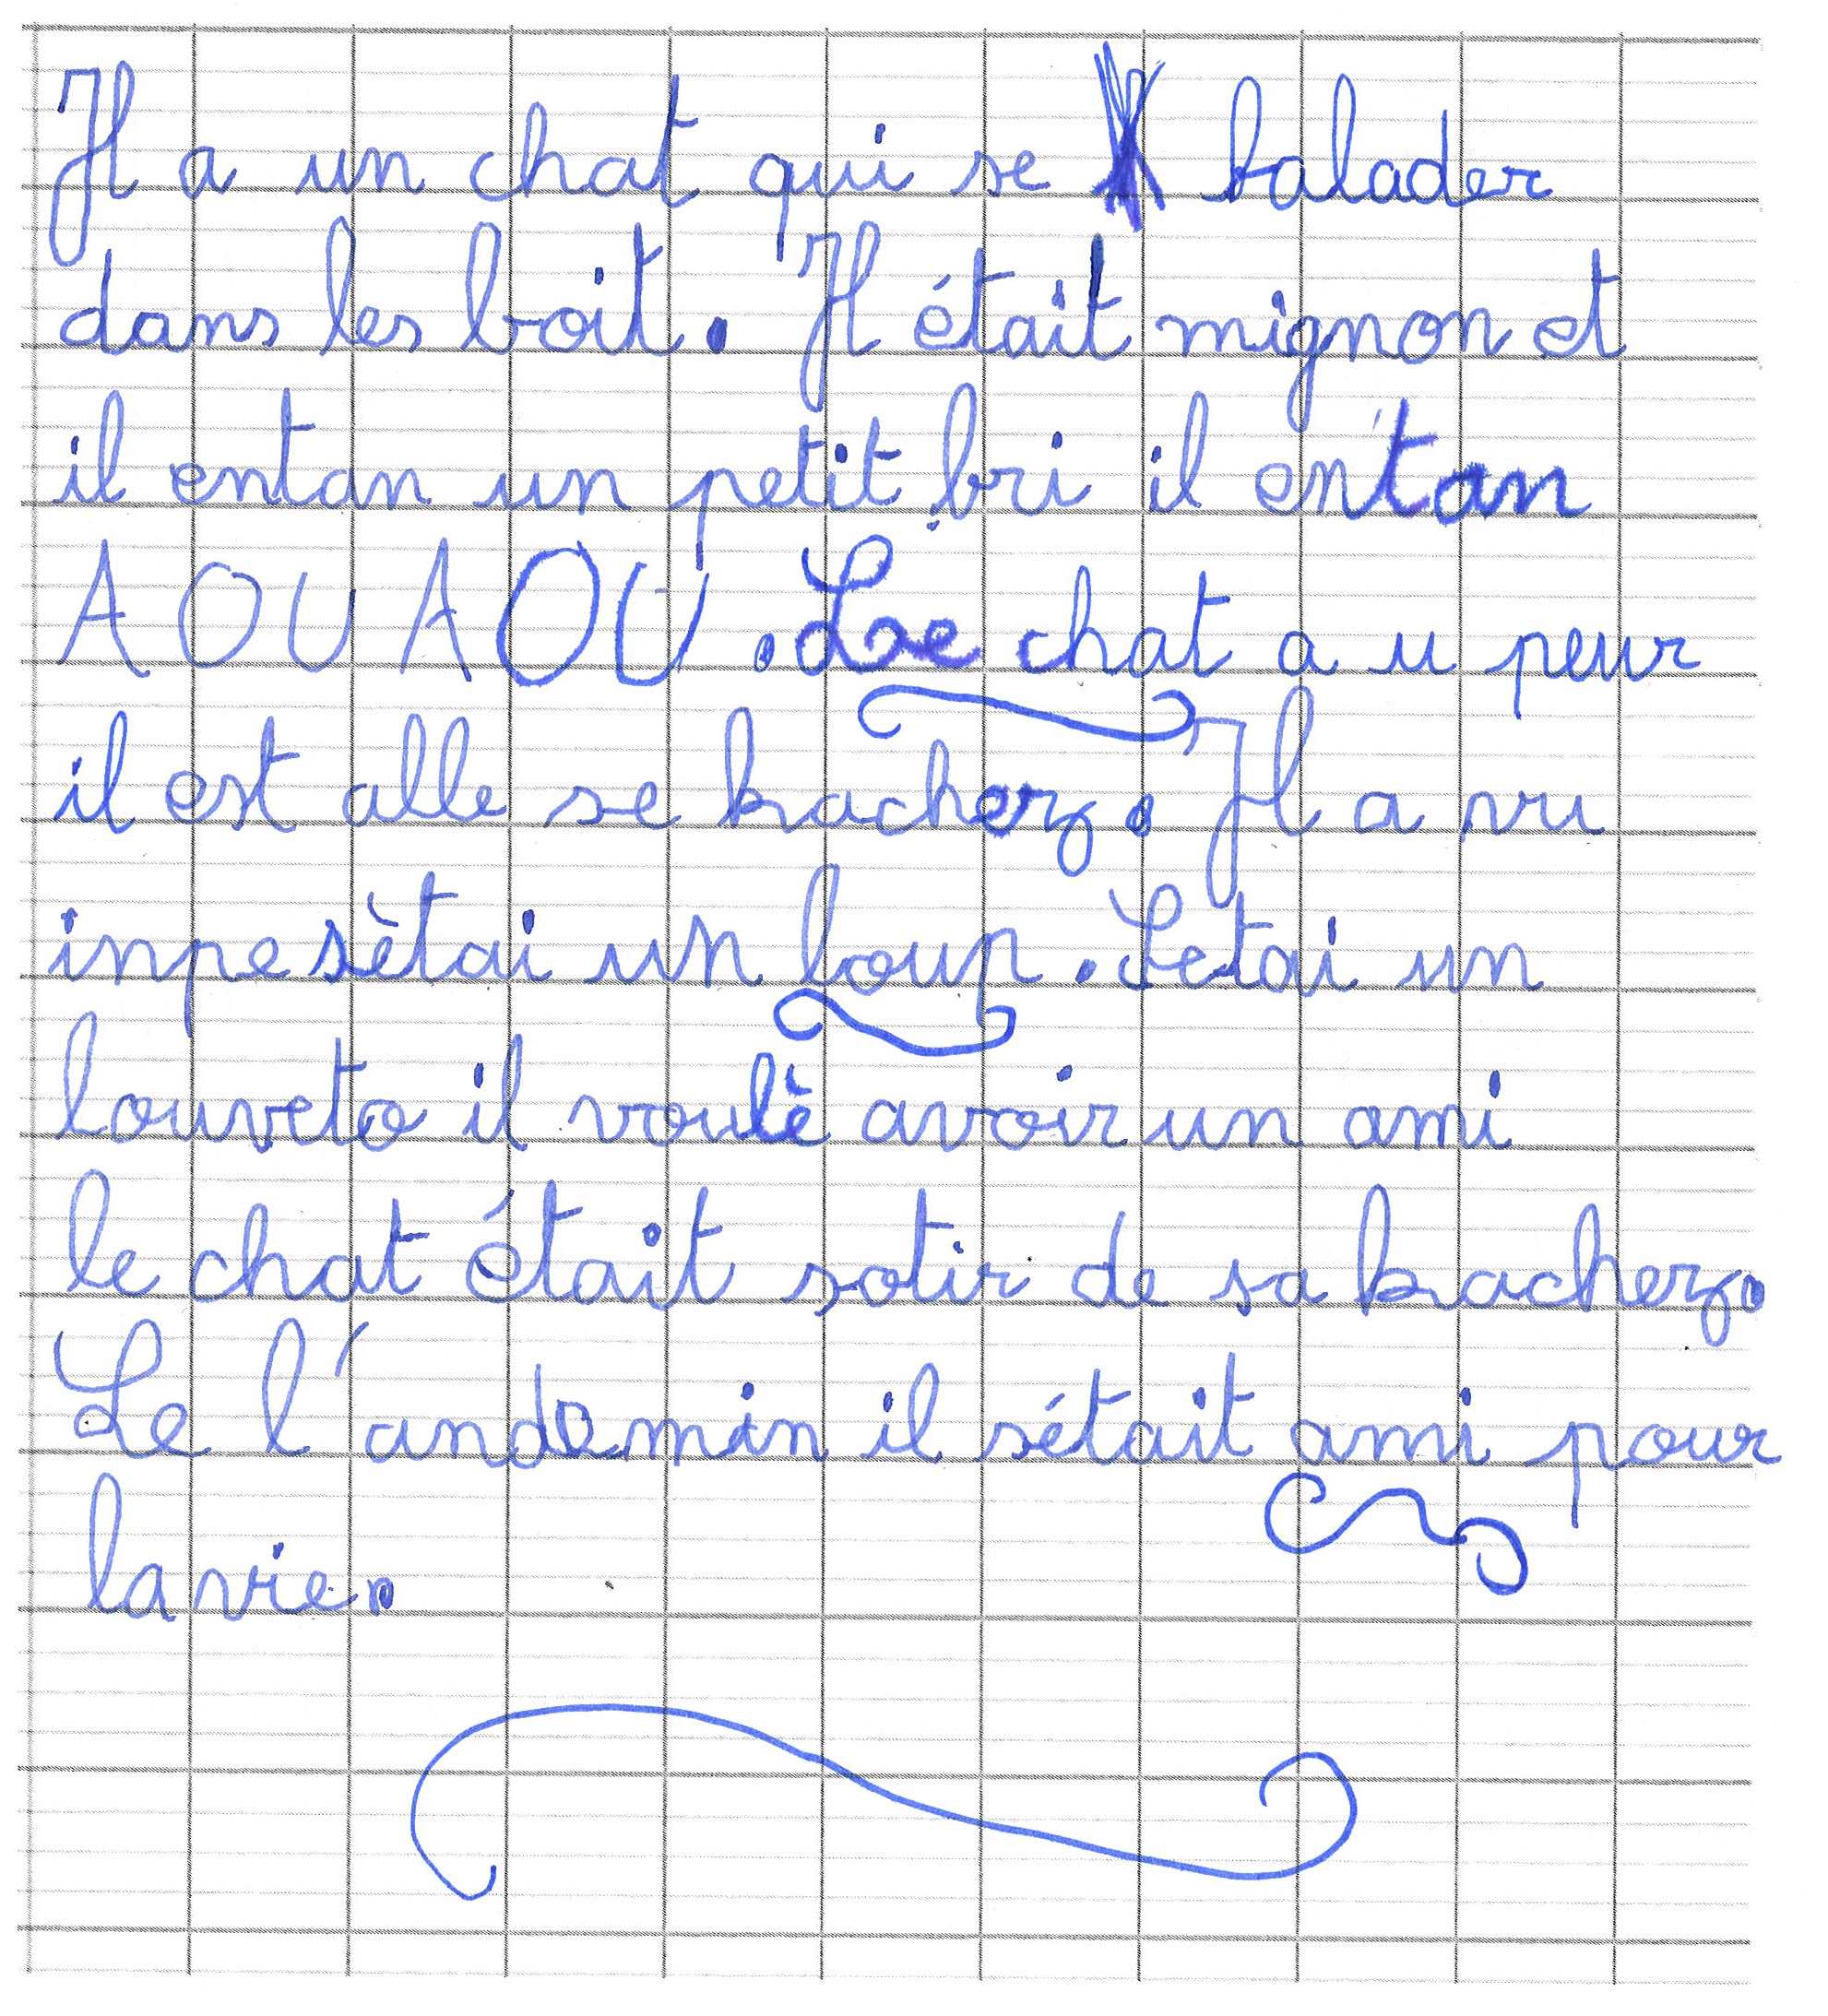 Il a un chat qui se balader
dans les boit. Il était mignon et
il entan un petit bri il entan
AOUAOU. Le chat a u peur
il est alle se kacherz. Il a vu
inpe sètai un loup. Setai un
louveto il voulè avoir un ami
le chat était sotir de sa kacherz.
Le l'andemin il sétait ami pour
la vie.